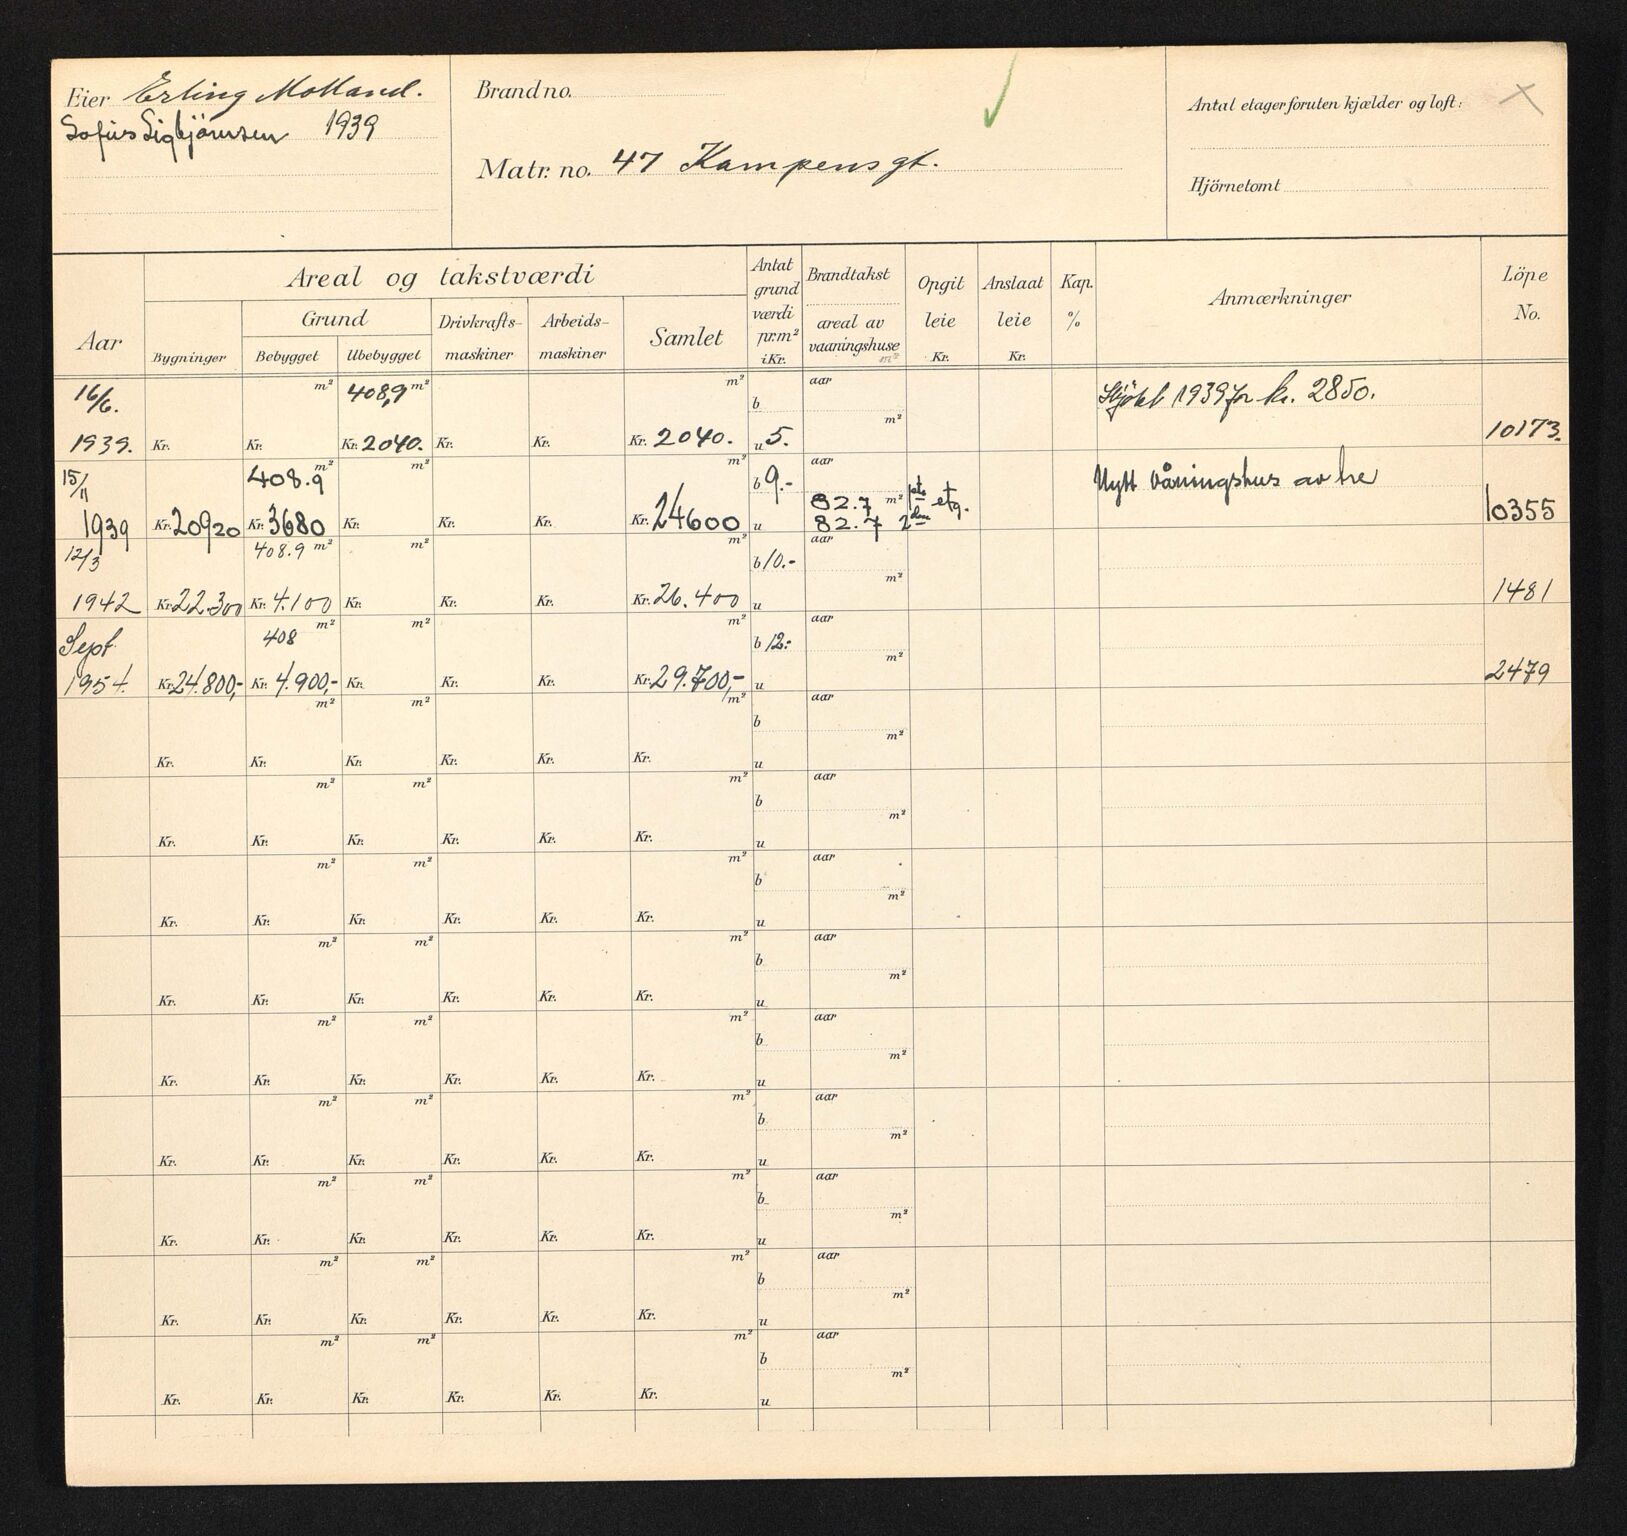 Eier Erling Molland.
Sofus Sigbjörnsen 1939
Brand no.
Matr. no. 47 Kampensgt.
Antal etager foruten kjælder og loft:
Hjörnetomt
Aar
Areal og takstværdi
Bygninger
Grund
Bebygget Ubebygget
Drivkrafts-
maskiner
Arbeids-
maskiner
Samlet
Antat
grund
værdi
pr.m²
i Kr.
Brandtakst
areal av
vaaningshuse
m²
Opgit
leie
Kr.
Anslaat
leie
Kr.
Kap.
%
Anmærkninger
Löpe
No.
16/6. m² 408,9 m² m² aar Kjøbt 1939 for kr. 2850.
b m²
1939. Kr. Kr. Kr. 2040. Kr. Kr. Kr. 2040. u 5. 10173.
15/11 408.9 m² m² m² b 9.- aar Nytt våningshus av tre
82.7 m² 1ste etg.
1939 Kr. 20920 Kr. 3680 Kr. Kr. Kr. Kr. 24600 u 82.7 2den 10355
12/3 408.9 m² m² m² b 10.- aar
m²
1942 Kr. 22.300 Kr. 4.100 Kr. Kr. Kr. Kr. 26.400 u 1481
Sept. 408 m² m² m² b 12.- aar
m²
1954. Kr. 24.800,- Kr. 4.900,- Kr. Kr. Kr. Kr. 29.700,- u 2479
m² m² m² aar
b m²
Kr. Kr. Kr. Kr. Kr. Kr. u
m² m² m² aar
b m²
Kr. Kr. Kr. Kr. Kr. Kr. u
m² m² m² aar
b m²
Kr. Kr. Kr. Kr. Kr. Kr. u
m² m² m² aar
b m²
Kr. Kr. Kr. Kr. Kr. Kr. u
m² m² m² aar
b m²
Kr. Kr. Kr. Kr. Kr. Kr. u
m² m² m² aar
b m²
Kr. Kr. Kr. Kr. Kr. Kr. u
m² m² m² aar
b m²
Kr. Kr. Kr. Kr. Kr. Kr. u
m² m² m² aar
b m²
Kr. Kr. Kr. Kr. Kr. Kr. u
m² m² m² aar
b m²
Kr. Kr. Kr. Kr. Kr. Kr. u